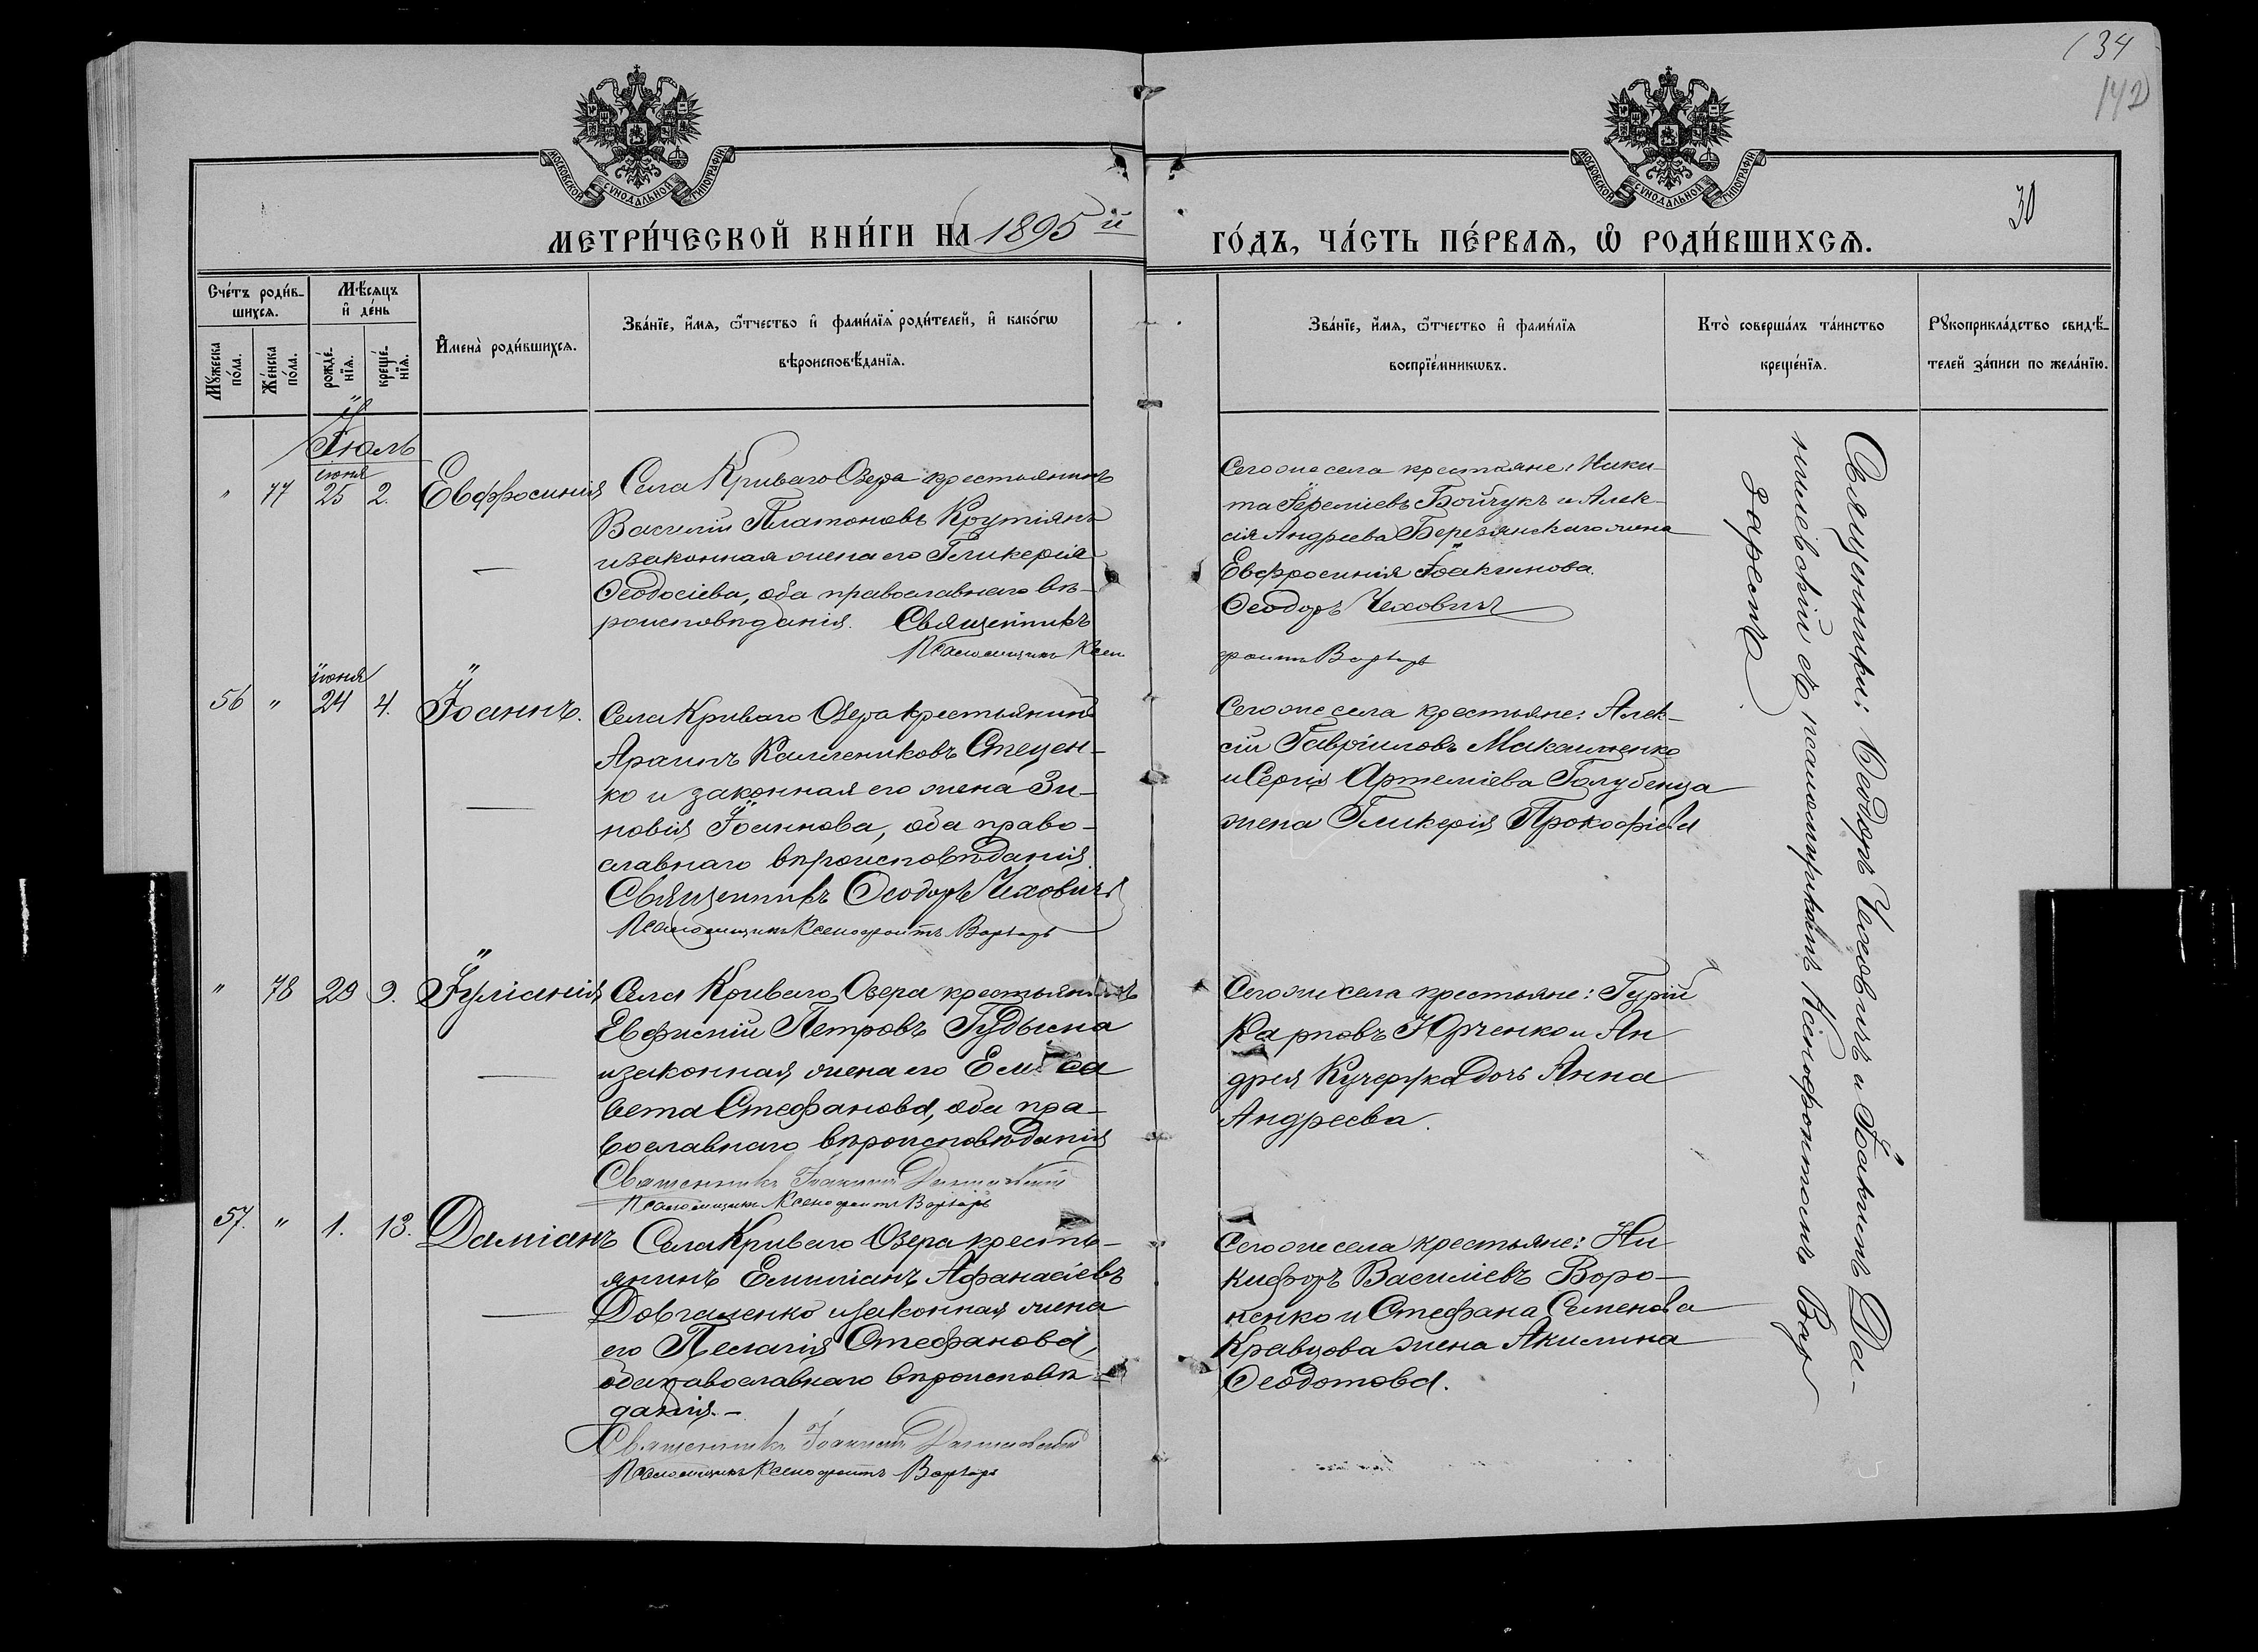 134
142
30
МОСКОВСКОЙ СѴНОДАЛЬНОЙ ТИПОГРАФІИ
МОСКОВСКОЙ СѴНОДАЛЬНОЙ ТИПОГРАФІИ
МЕТРИ́ЧЕСКОЙ КНИ́ГИ НА 1895й
ГО́ДЪ, ЧА́СТЬ ПЕ́РВАѦ, Ѡ РОДИ́ВШИХСѦ.
Сче́тъ роди́в-
шихсѧ.
Мꙋ́жеска по́ла.
Же́нска по́ла.
Мѣ́сѧцъ
и҆ де́нь
рожде́-
нїѧ.
креще́-
нїѧ.
И҆мена̀ роди́вшихсѧ.
Зва́нїе, и҆́мѧ, ѻ҆́тчество и҆ фами́лїѧ роди́телей, и҆ како́гѡ
вѣроисповѣ́данїѧ.
Зва́нїе, и҆́мѧ, ѻ҆́тчество и҆ фами́лїѧ
воспрїе́мникѡвъ.
Кто̀ соверша́лъ та́инство
креще́нїѧ.
Рꙋкоприкла́дство свидѣ́-
телей за́писи по жела́нїю.
Іюль
іюня
" 77 25 2. Евфросинія
Села Криваго Озера крестьянинъ
Василій Платоновъ Крутіянъ
и законная жена его Гликерія
Ѳеодосіева, оба православнаго вѣ-
роисповѣданія. Священникъ
Псаломщикъ Ксено
Сегоже села крестьяне: Ники-
та Іереміевъ Бойчукъ и Алек-
сія Андреева Березянскаго жена
Евфросинія Іоакимова.
Ѳеодоръ Чеховичъ
фонтъ Варзарь
іюня
56 " 24 4. Іоаннъ.
Села Криваго Озера крестьянинъ
Каллениковъ Стецен-
ко и законная его жена Зи-
новія Іоаннова, оба право-
славнаго вѣроисповѣданія.
Священникъ Ѳеодоръ Чеховичъ
Псаломщикъ Ксенофонтъ Варзарь
Сегоже села крестьяне: Алек-
сій Гавріиловъ Макаименко
и Сергія Артеміева Голубенца
жена Гликерія Прокофіева
" 78 29 9. Іуліанія
Села Криваго Озера крестьянинъ
Евфимій Петровъ Гудыма
и законная жена его Елиса
вета Стефанова, оба пра-
вославнаго вѣроисповѣданія
Священникъ Іоакимъ Данилевскій
Псаломщикъ Ксенофонтъ Варзарь
Сегоже села крестьяне: Гурій
Карповъ Юрченко и Ан
дрея Кучерука дочь Анна
Андреева.
57. " 1. 13. Даміанъ
Села Криваго Озера кресть-
янинъ Емиліанъ Афанасіевъ
Довгаленко и законная жена
его Пелагія Стефанова,
оба православнаго вѣроисповѣ-
данія.-
Священникъ Іоакимъ Данилевскій
Псаломщикъ Ксенофонтъ Варзарь
Сегоже села крестьяне: Ни
кифоръ Василіевъ Воро-
ненко и Стефана Семенова
Кравцова жена Акилина
Ѳеодотова.
Священники: Ѳеодоръ Чеховичъ и Іоакимъ Да-
нилевскій съ псаломщикомъ Ксенофонтомъ Вар
заремъ.